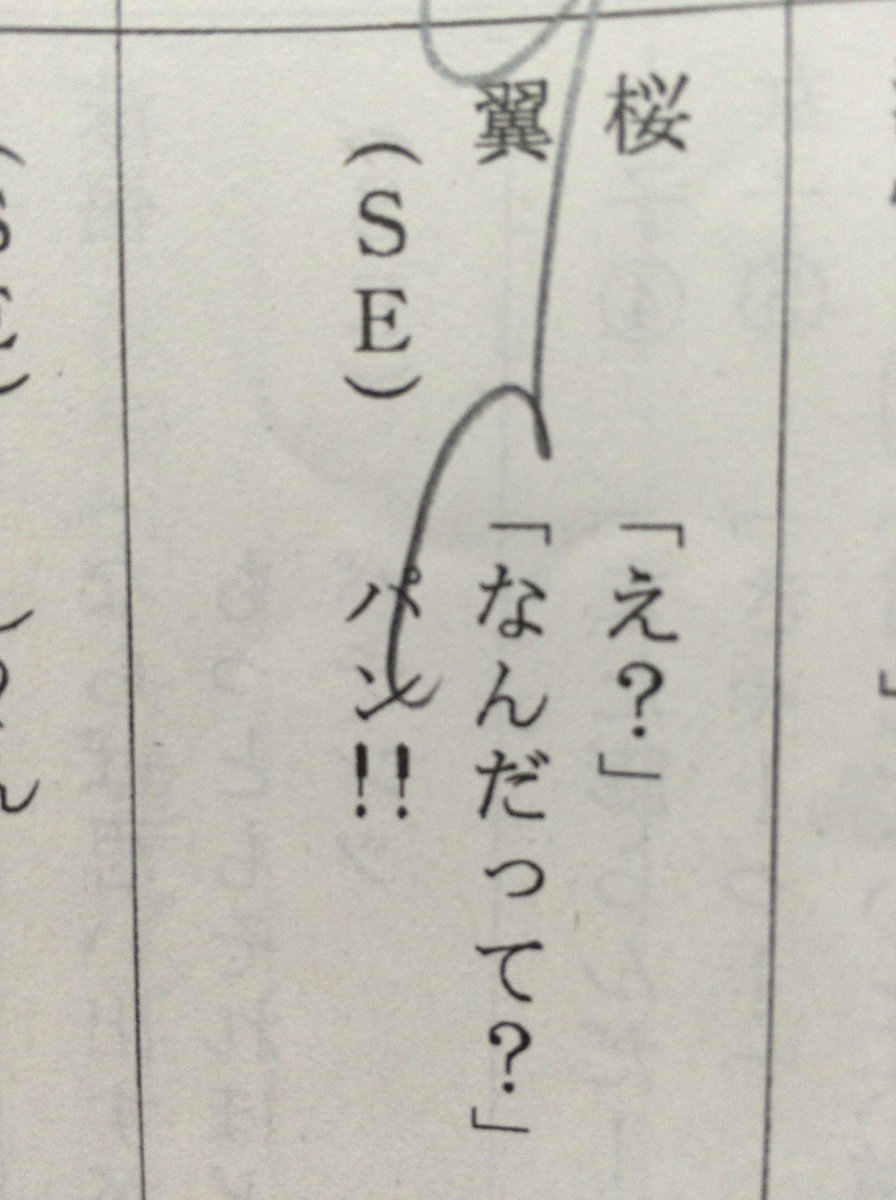 桜 「え?」
翼 「なんだって?」
(SE) パン!!
(SE)